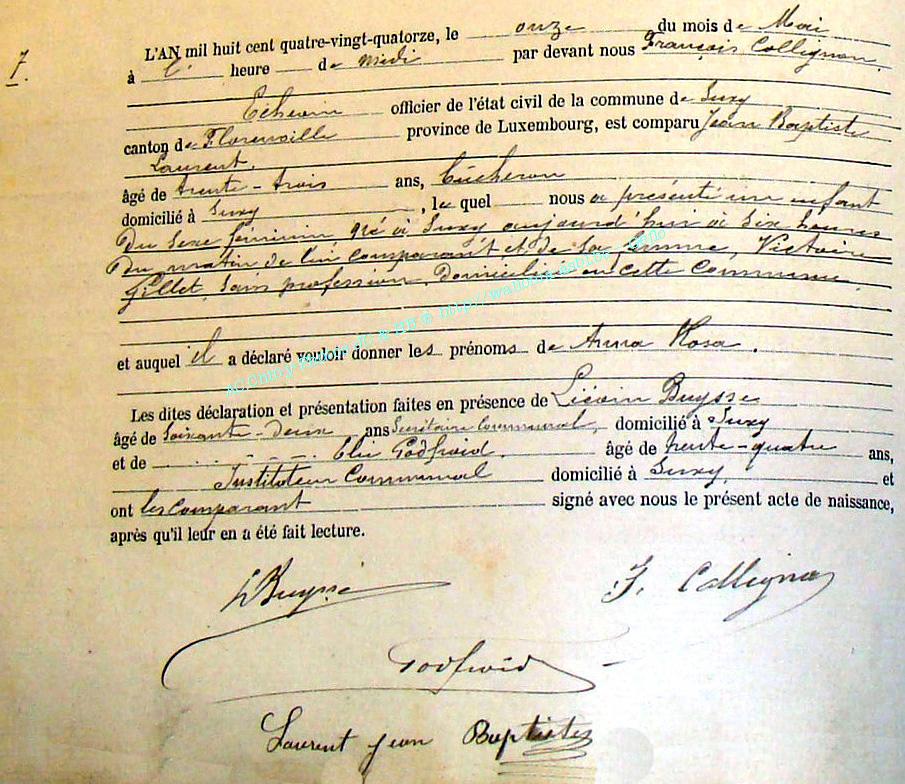 7.
L'AN mil huit cent quatre-vingt-quatorze, le onze du mois de Mai
à l' heure de midi par devant nous François Collignon,
Echevin officier de l'état civil de la commune de Suxy
canton de Florenville province de Luxembourg, est comparu Jean Baptiste
Laurent,
âgé de trente-trois ans, bûcheron
domicilié à Suxy, le quel nous a présenté un enfant
du sexe féminin né à Suxy aujourd'hui à six heures
du matin de lui comparant et de sa femme, Victoire
Gillet, sans profession, domiciliée en cette commune,
et auquel il a déclaré vouloir donner les prénoms de Anna Rosa.
Les dites déclaration et présentation faites en présence de Liévin Buysse
âgé de soixante-deux ans Secrétaire Communal, domicilié à Suxy
et de Elie Godfroid, âgé de trente-quatre ans,
Instituteur Communal domicilié à Suxy, et
ont les comparant signé avec nous le présent acte de naissance,
après qu'il leur en a été fait lecture.
L Buysse
F. Collignon
Godfroid
Laurent jean Baptiste